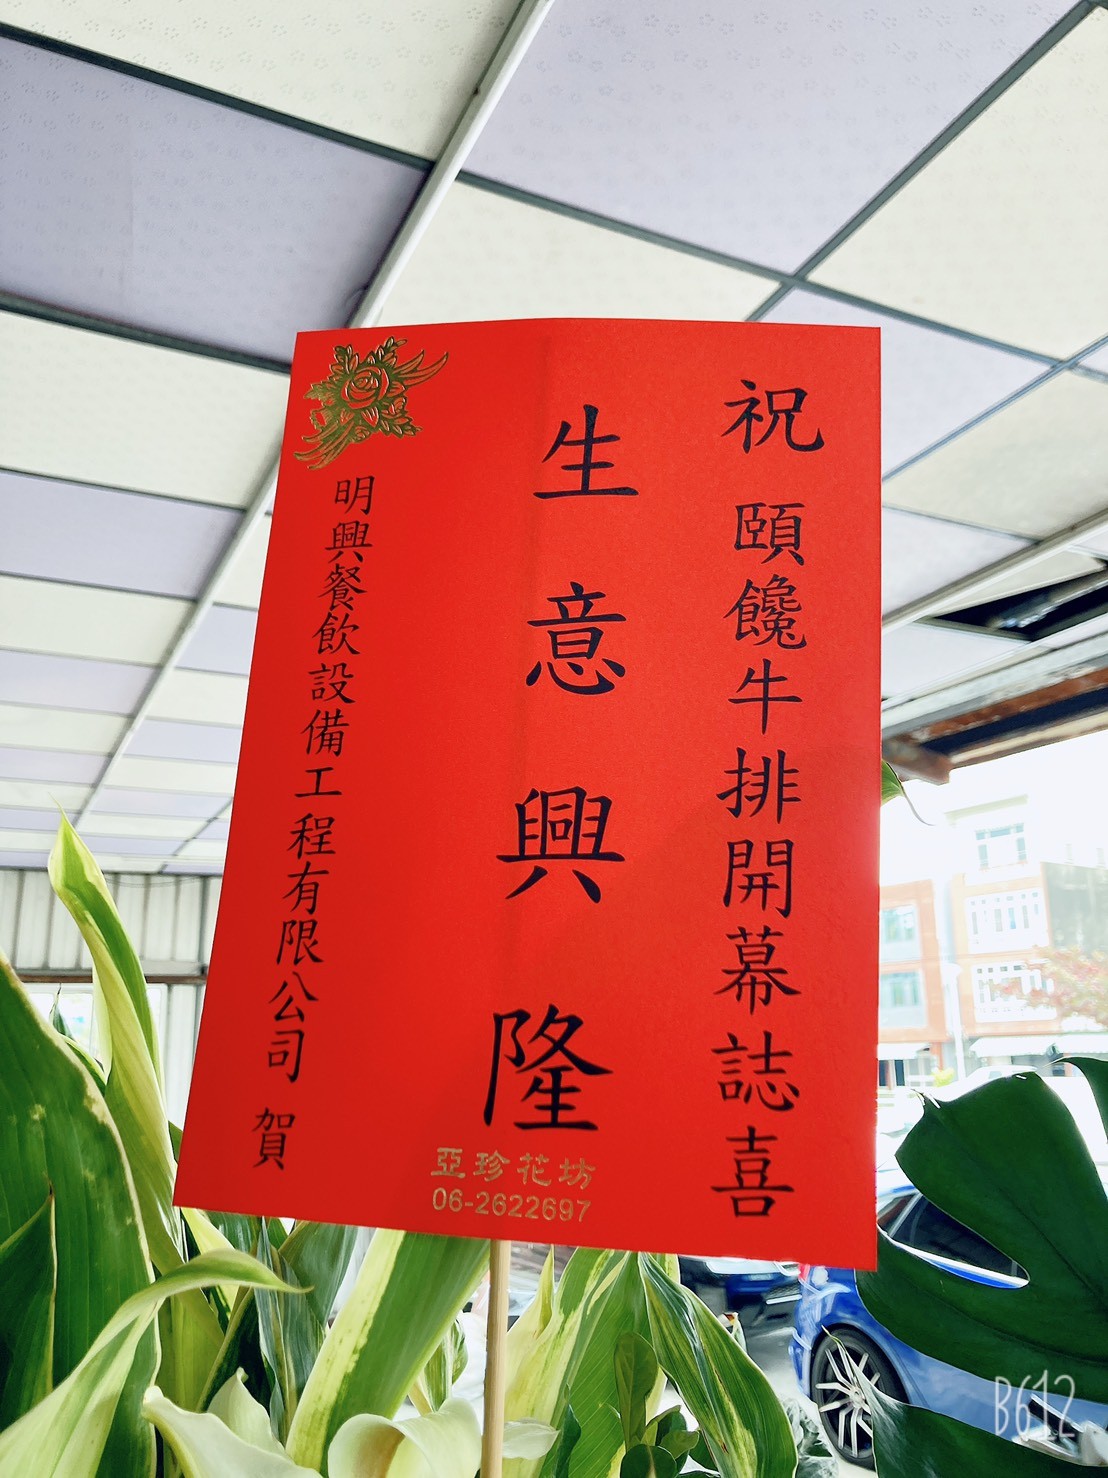 祝 頤饞牛排開幕誌喜
生意興隆
明興餐飲設備工程有限公司 賀
亞珍花坊
06-2622697
B612